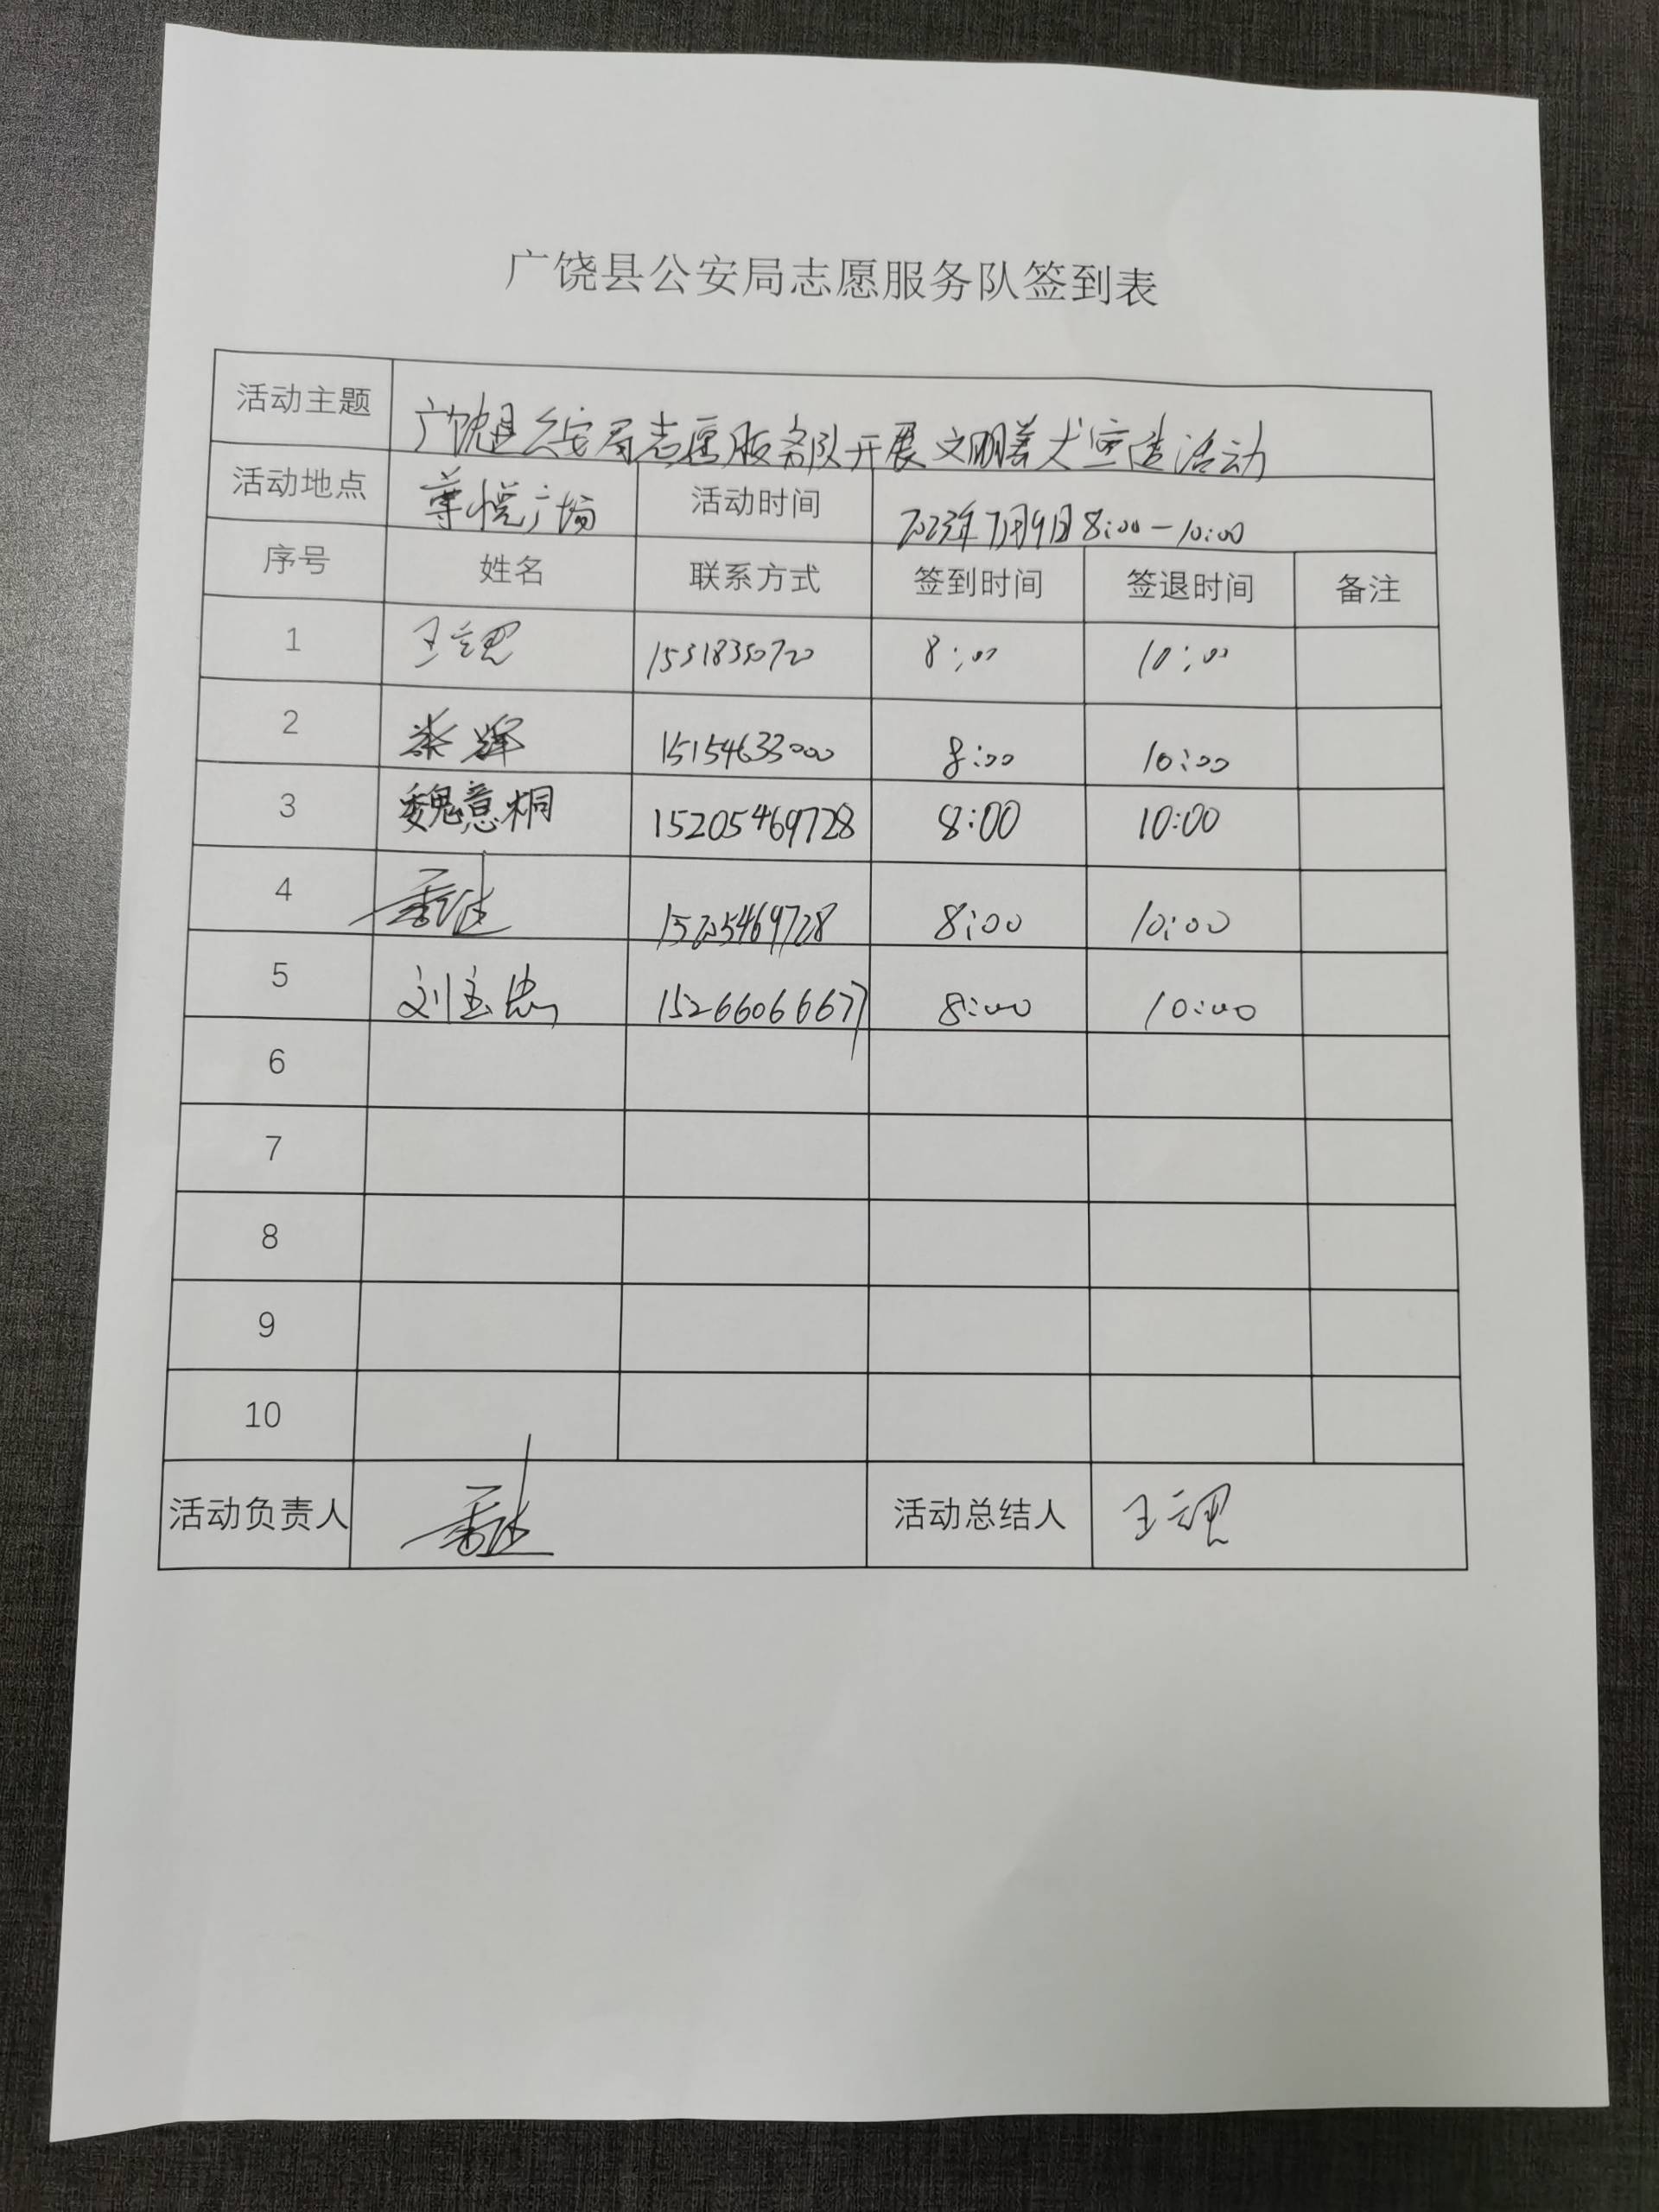 广饶县公安局志愿服务队签到表
活动主题 广饶县公安局志愿服务队开展文明养犬宣传活动
活动地点 尊悦广场 活动时间 2023年7月9日 8:00-10:00
序号 姓名 联系方式 签到时间 签退时间 备注
1 8:00 10:00
2 荣辉 15154633000 8:00 10:00
3 魏意桐 15205469728 8:00 10:00
4 15205469728 8:00 10:00
5 刘玉忠 15266066677 8:00 10:00
6
7
8
9
10
活动负责人 活动总结人